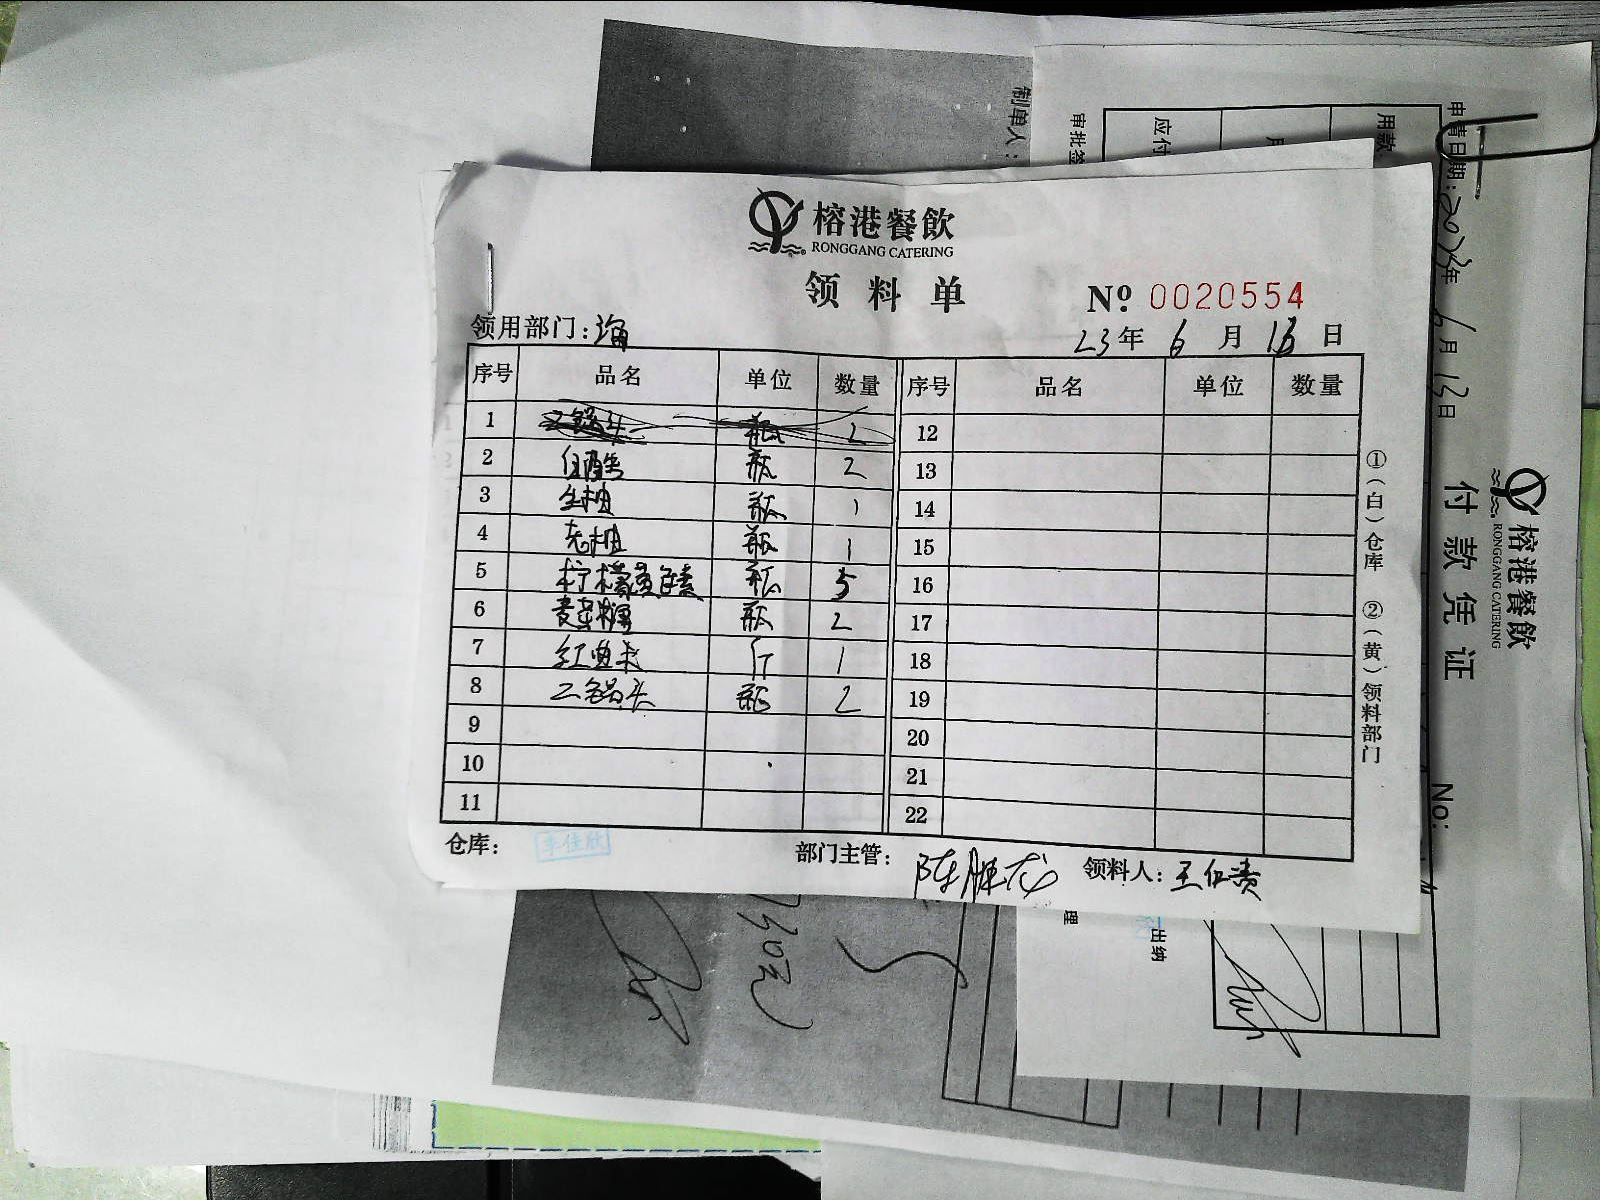 榕港餐飲
RONGGANG CATERING
领料单
No 0020554
领用部门:
23年6月13日
序号 品名 单位 数量 序号 品名 单位 数量
1 二锅头 瓶 2 12
2 白醋 瓶 2 13
3 生抽 瓶 1 14
4 老抽 瓶 1 15
5 柠檬黄色素 瓶 5 16
6 麦芽糖 瓶 2 17
7 红曲米 斤 1 18
8 二锅头 瓶 2 19
9 20
10 21
11 22
①(白)仓库 ②(黄)领料部门
仓库: 李佳欣 部门主管: 陈胜龙 领料人:
制单人:
审批签
应付
月
用款
申请日期:2023年6月13日
榕港餐飲
RONGGANG CATERING
付款凭证
No:
理
出纳